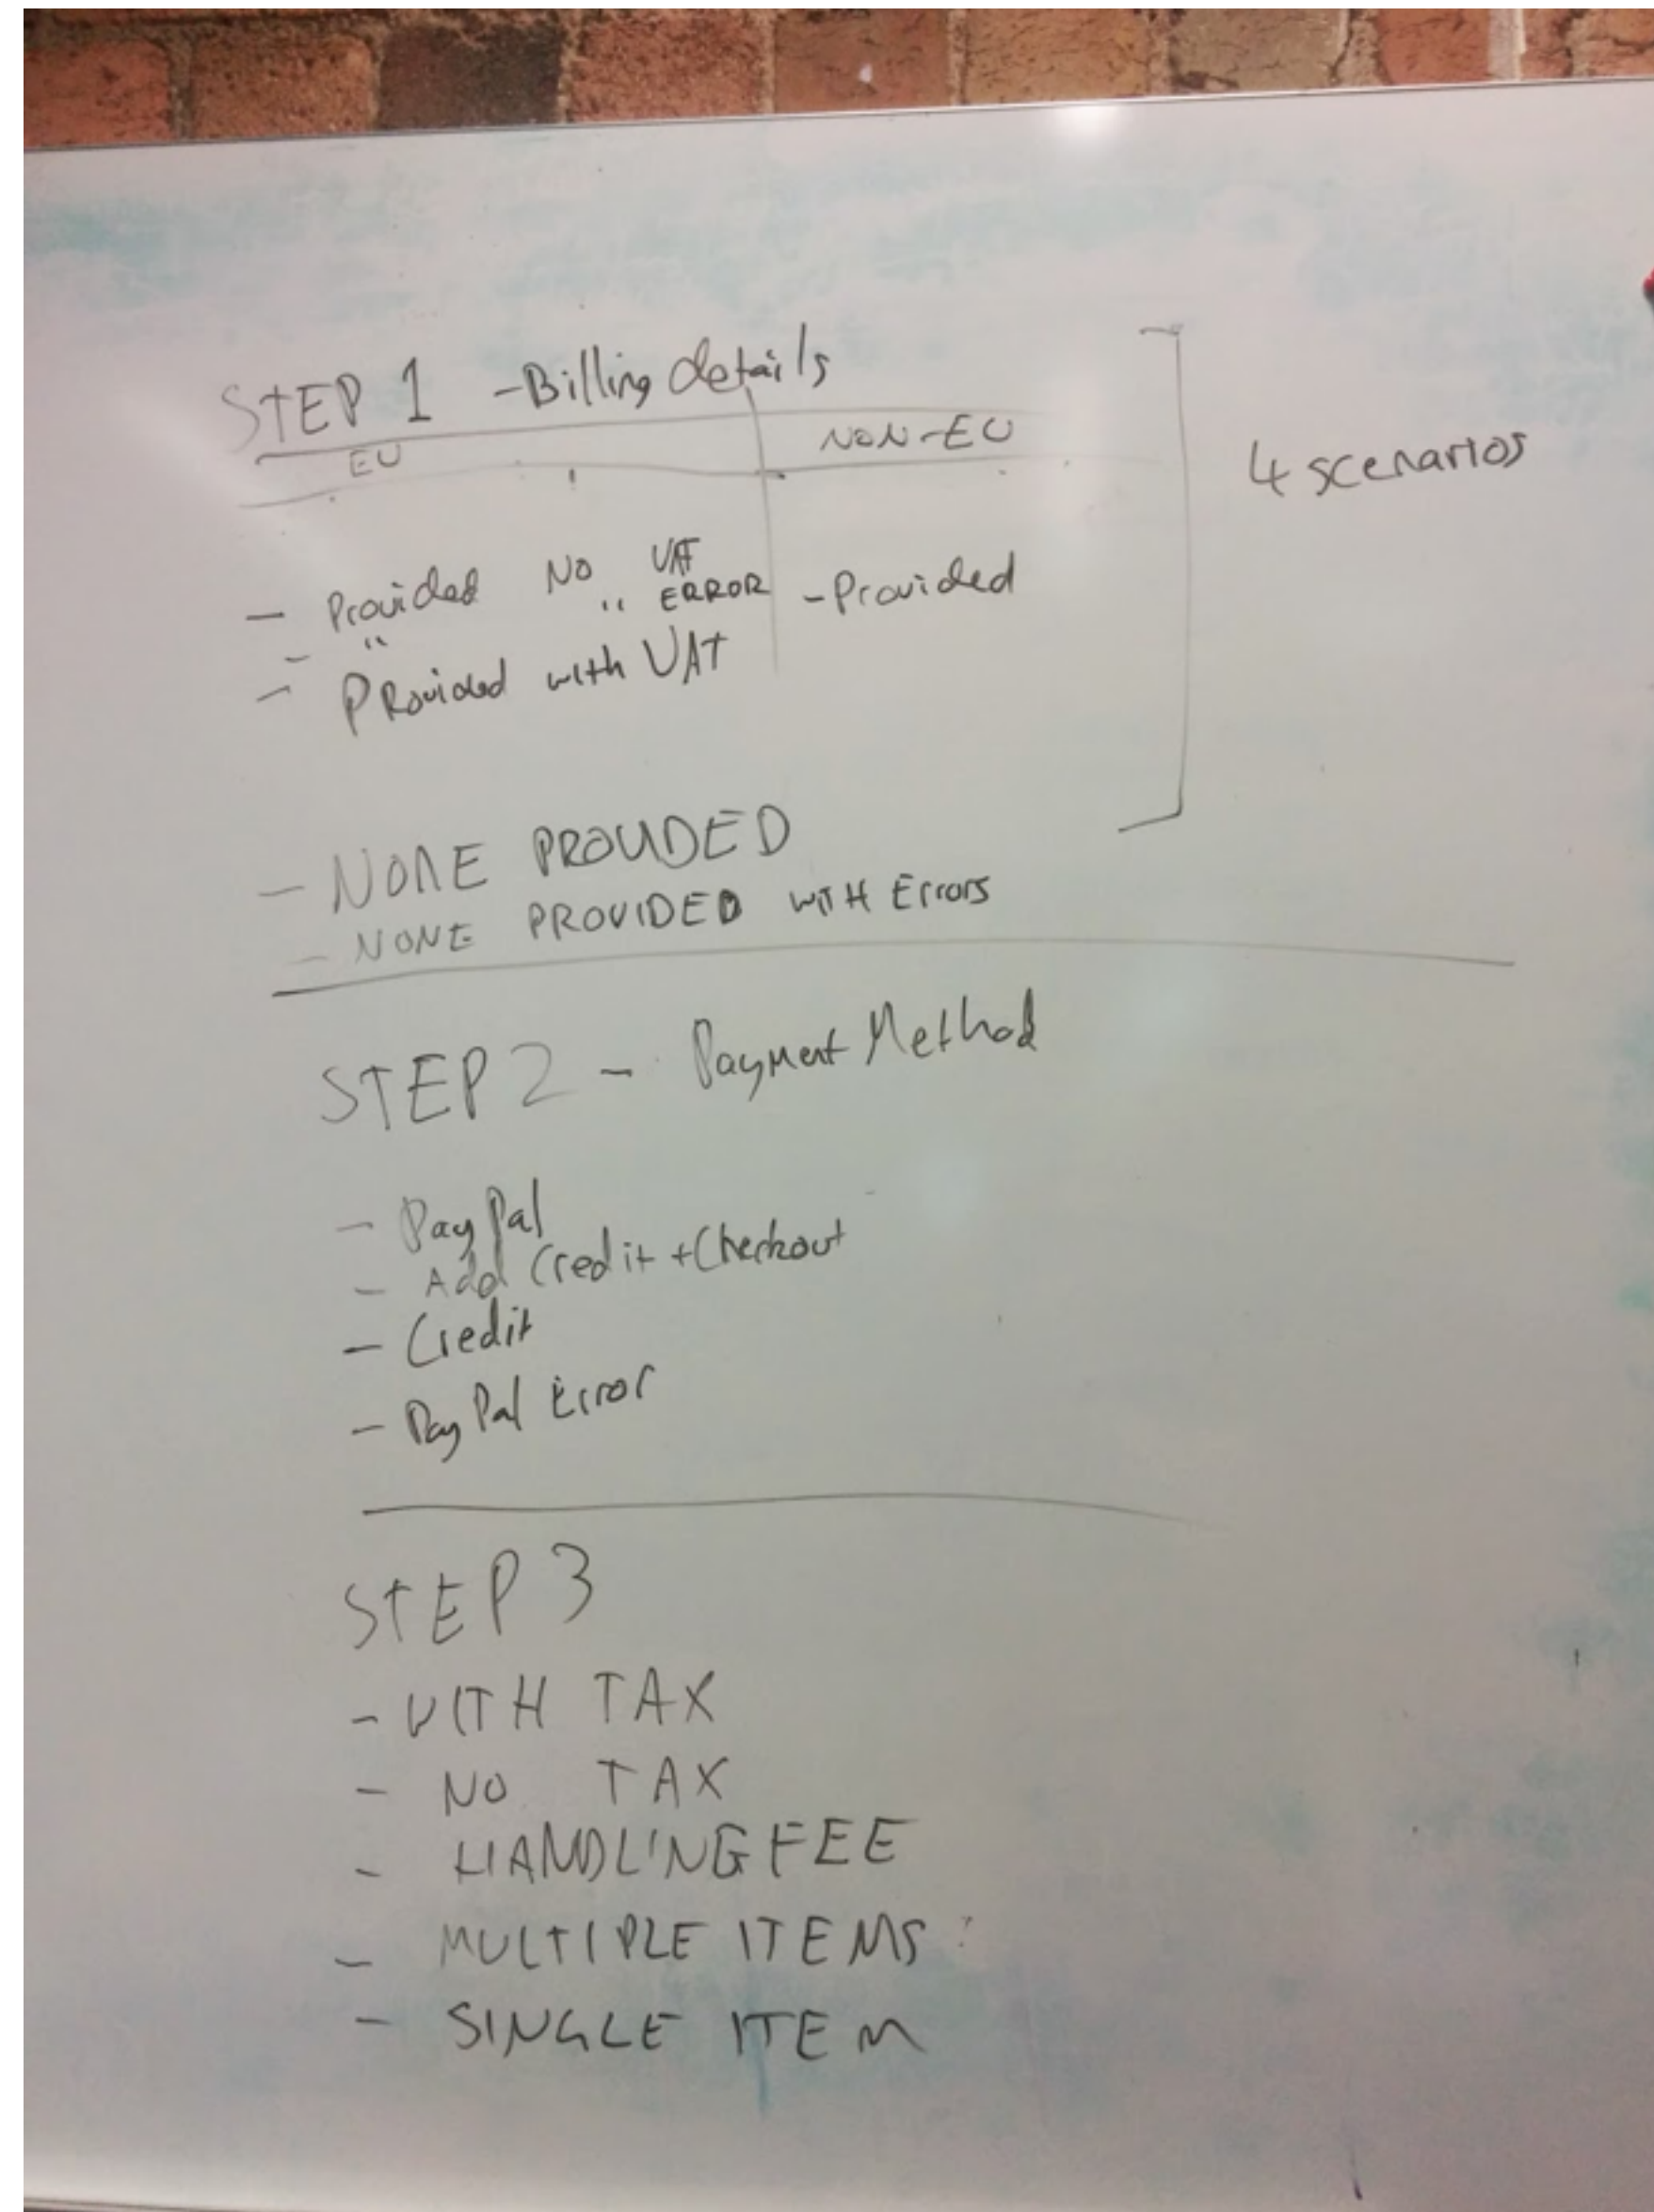 STEP 1 - Billing details
EU
NON-EU
4 scenarios
- Provided NO VAT
- " " ERROR
- PRovided with VAT
- Provided
- NONE PROVIDED
- NONE PROVIDED WITH Errors
STEP 2 - Payment Method
- PayPal
- Add Credit + Checkout
- Credit
- PayPal Error
STEP 3
- WITH TAX
- NO TAX
- HANDLING FEE
- MULTIPLE ITEMS
- SINGLE ITEM